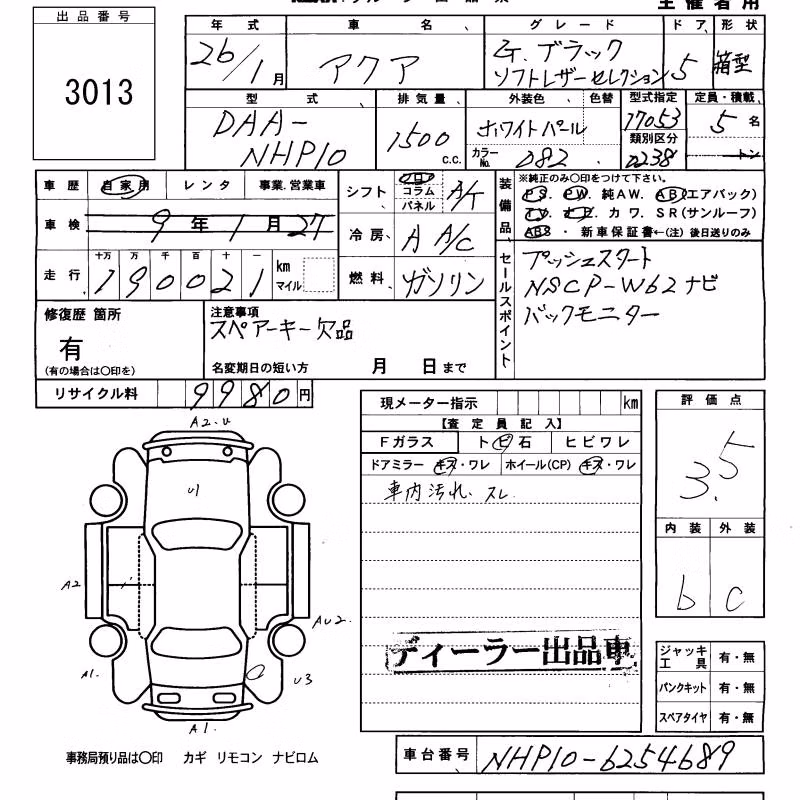 主催者用
出品番号
3013
年式 車名 グレード ドア 形状
26/1月 アクア G.ブラックソフトレザーセレクション 5 箱型
型式 排気量 外装色 色替 型式指定 定員・積載
DAA-NHP10 1500 c.c. ホワイトパール 17053 5名
カラーNo. 082 類別区分 0238 トン
車歴 自家用 レンタ 事業.営業車
シフト フロ コラム パネル A/T
装備品 ※純正のみ○印をつけて下さい。
PS. PW. 純AW. AB(エアバック)
TV. ナビ. カワ. SR(サンルーフ)
ABS ・ 新車保証書←(注) 後日送りのみ
車検 9年1月27
冷房 A A/C
走行 十万 万 千 百 十 一
190021 km マイル
燃料 ガソリン
セールスポイント
プッシュスタート
NSCP-W62ナビ
バックモニター
修復歴 箇所
有
(有の場合は○印を)
注意事項
スペアーキー欠品
名変期日の短い方 月 日まで
リサイクル料 9980円
現メーター指示 km
【査定員記入】
Fガラス トビ石 ヒビワレ
ドアミラー キズ・ワレ ホイール(CP) キズ・ワレ
車内汚れ.スレ
ディーラー出品車
評価点
3.5
内装 外装
b c
A2.U
U1
A2
AU2
A1.
U3
A1.
ジャッキ工具 有・無
パンクキット 有・無
スペアタイヤ 有・無
事務局預り品は○印 カギ リモコン ナビロム
車台番号 NHP10-6254689